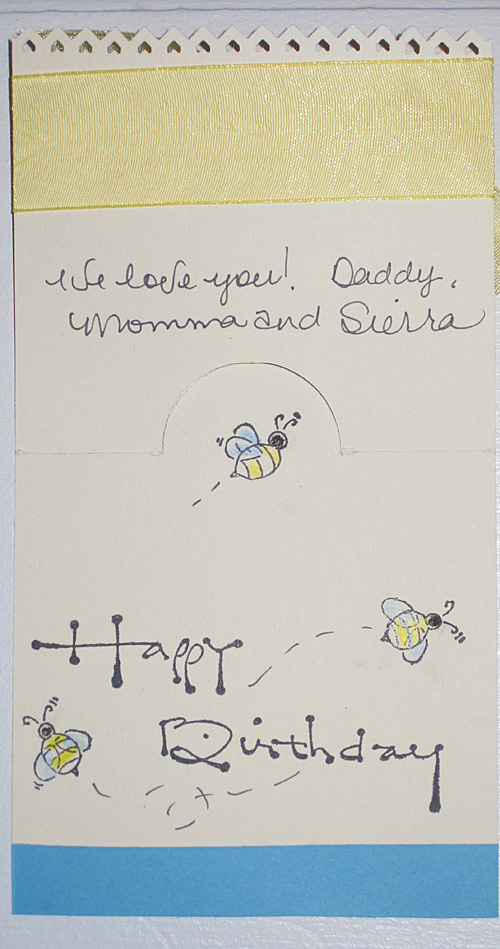 We love you! Daddy,
Momma and Sierra
Happy
Birthday